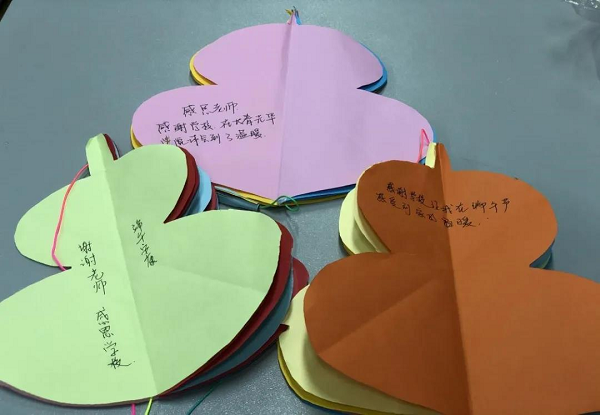 感恩老师
感谢学校 在大
感到了温暖。
端午安康
谢谢老师 感恩学校
感谢学校让我在端午节
感受到家的温暖.